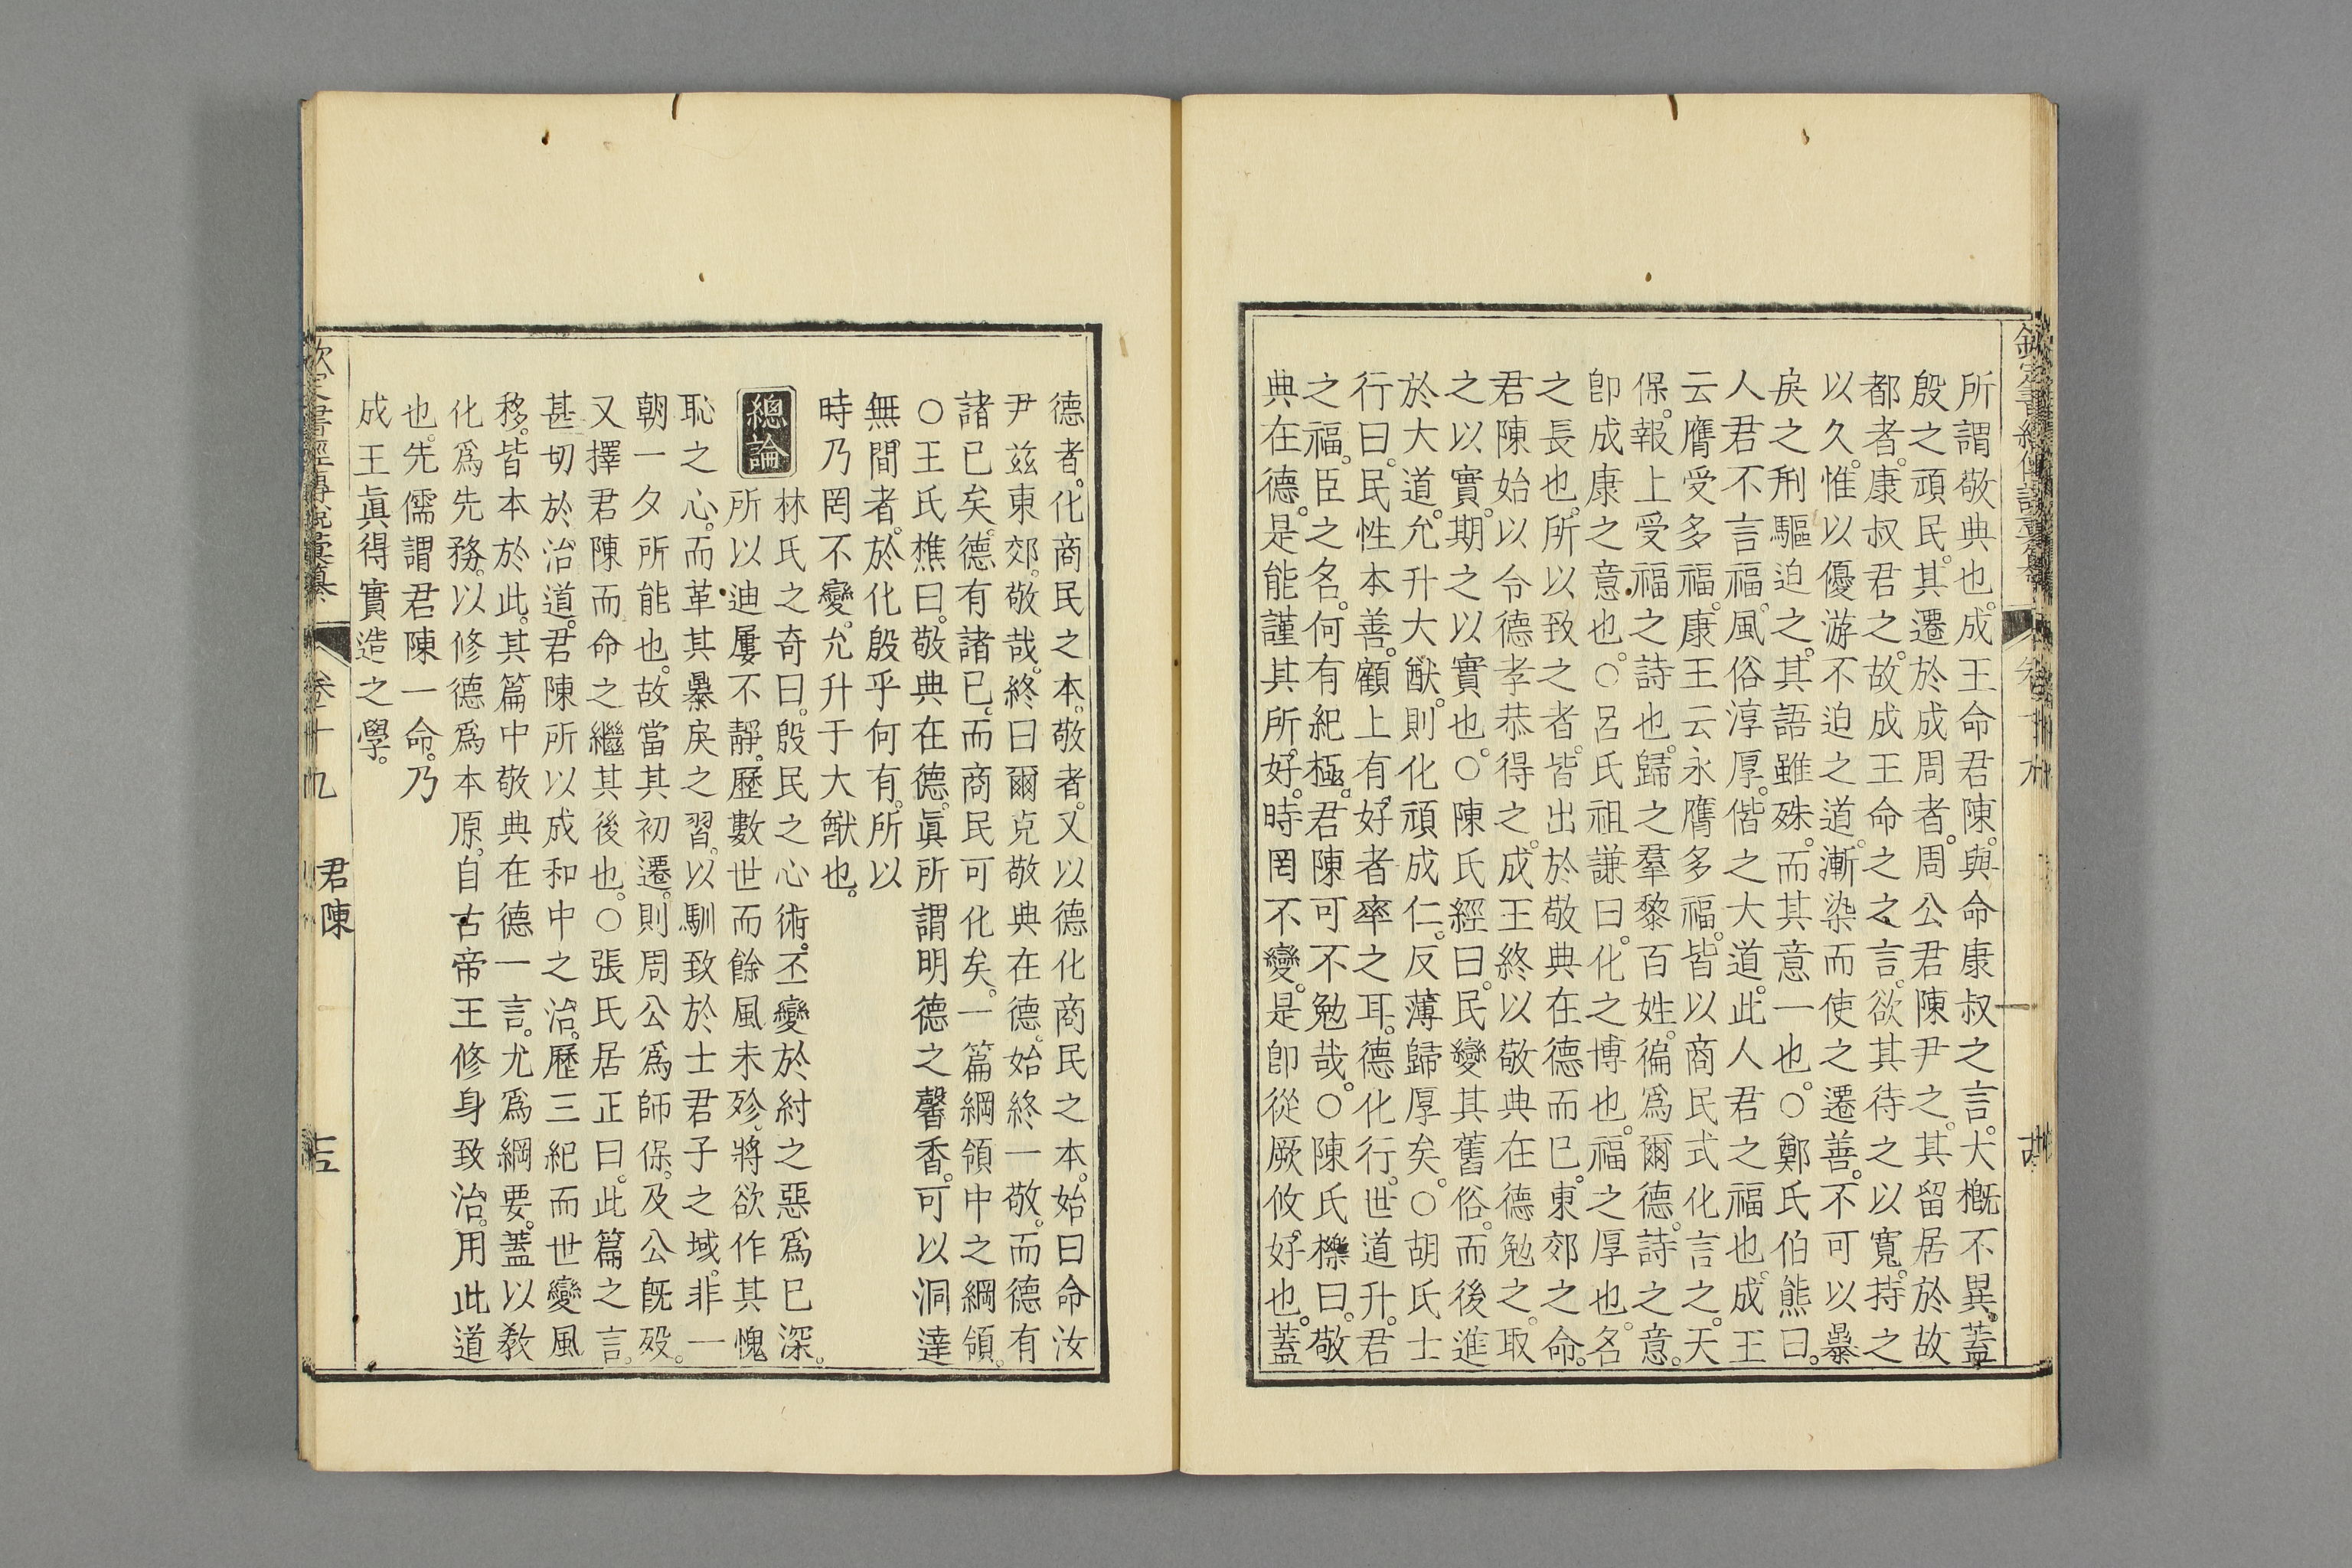 所謂敬典也。成王命君陳。與命康叔之言。大槪不異。蓋
殷之頑民。其遷於成周者。周公君陳尹之。其留居於故
都者。康叔君之。故成王命之之言。欲其待之以寬。持之
以久。惟以優游不迫之道。漸染而使之遷善。不可以暴
戾之刑驅迫之。其語雖殊。而其意一也。○鄭氏伯熊曰。
人君不言福。風俗淳厚。偕之大道。此人君之福也。成王
云膺受多福。康王云永膺多福。皆以商民式化言之。天
保。報上受福之詩也。歸之羣黎百姓。徧爲爾德。詩之意。
卽成康之意也。○呂氏祖謙曰。化之博也。福之厚也。名
之長也。所以致之者。皆出於敬典在德而已。東郊之命。
君陳始以令德孝恭得之。成王終以敬典在德勉之。取
之以實。期之以實也。○陳氏經曰。民變其舊俗。而後進
於大道。允升大猷。則化頑成仁。反薄歸厚矣。○胡氏士
行曰。民性本善。顧上有好者率之耳。德化行。世道升。君
之福。臣之名。何有紀極。君陳可不勉哉。○陳氏櫟曰。敬
典在德。是能謹其所好。時罔不變。是卽從厥攸好也。蓋
欽定書經傳說彙纂
卷十九
德者。化商民之本。敬者。又以德化商民之本。始曰命汝
尹茲東郊。敬哉。終曰爾克敬典在德。始終一敬。而德有
諸已矣。德有諸已。而商民可化矣。一篇綱領中之綱領。
○王氏樵曰。敬典在德。眞所謂明德之馨香。可以洞達
無間者。於化殷乎何有。所以
時乃罔不變。允升于大猷也。
總論
林氏之奇曰。殷民之心術。丕變於紂之惡爲已深。
所以迪屢不靜。歷數世而餘風未殄。將欲作其愧
恥之心。而革其暴戾之習。以馴致於士君子之域。非一
朝一夕所能也。故當其初遷。則周公爲師保。及公旣殁。
又擇君陳而命之繼其後也。○張氏居正曰。此篇之言。
甚切於治道。君陳所以成和中之治。歷三紀而世變風
移。皆本於此。其篇中敬典在德一言。尤爲綱要。蓋以敎
化爲先務。以修德爲本原。自古帝王修身致治。用此道
也。先儒謂君陳一命。乃
成王眞得實造之學。
欽定書經傳說彙纂
卷十九
君陳